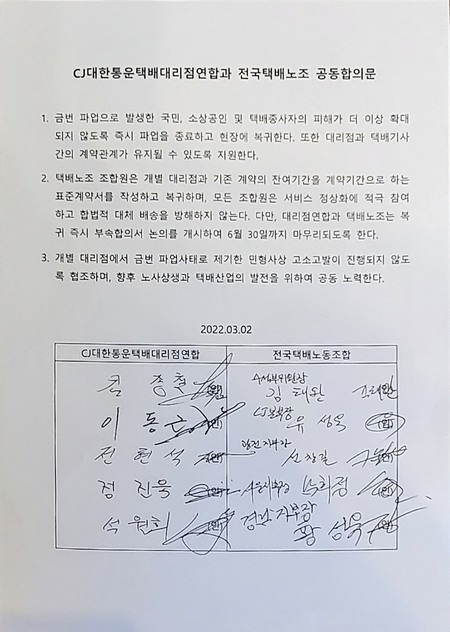 CJ대한통운택배대리점연합과 전국택배노조 공동합의문
1. 금번 파업으로 발생한 국민, 소상공인 및 택배종사자의 피해가 더 이상 확대
되지 않도록 즉시 파업을 종료하고 현장에 복귀한다. 또한 대리점과 택배기사
간의 계약관계가 유지될 수 있도록 지원한다.
2. 택배노조 조합원은 개별 대리점과 기존 계약의 잔여기간을 계약기간으로 하는
표준계약서를 작성하고 복귀하며, 모든 조합원은 서비스 정상화에 적극 참여
하고 합법적 대체 배송을 방해하지 않는다. 다만, 대리점연합과 택배노조는 복
귀 즉시 부속합의서 논의를 개시하여 6월 30일까지 마무리되도록 한다.
3. 개별 대리점에서 금번 파업사태로 제기한 민형사상 고소고발이 진행되지 않도
록 협조하며, 향후 노사상생과 택배산업의 발전을 위하여 공동 노력한다.
2022.03.02
CJ대한통운택배대리점연합 전국택배노동조합
김종철 (인) 수석부위원장 김태완
이동 (인) CJ본부장 유성욱 (인)
전현석 (인) 지부장 신창길
정진욱 (인)
석원희 (인) 경남지부장 황성욱 (인)